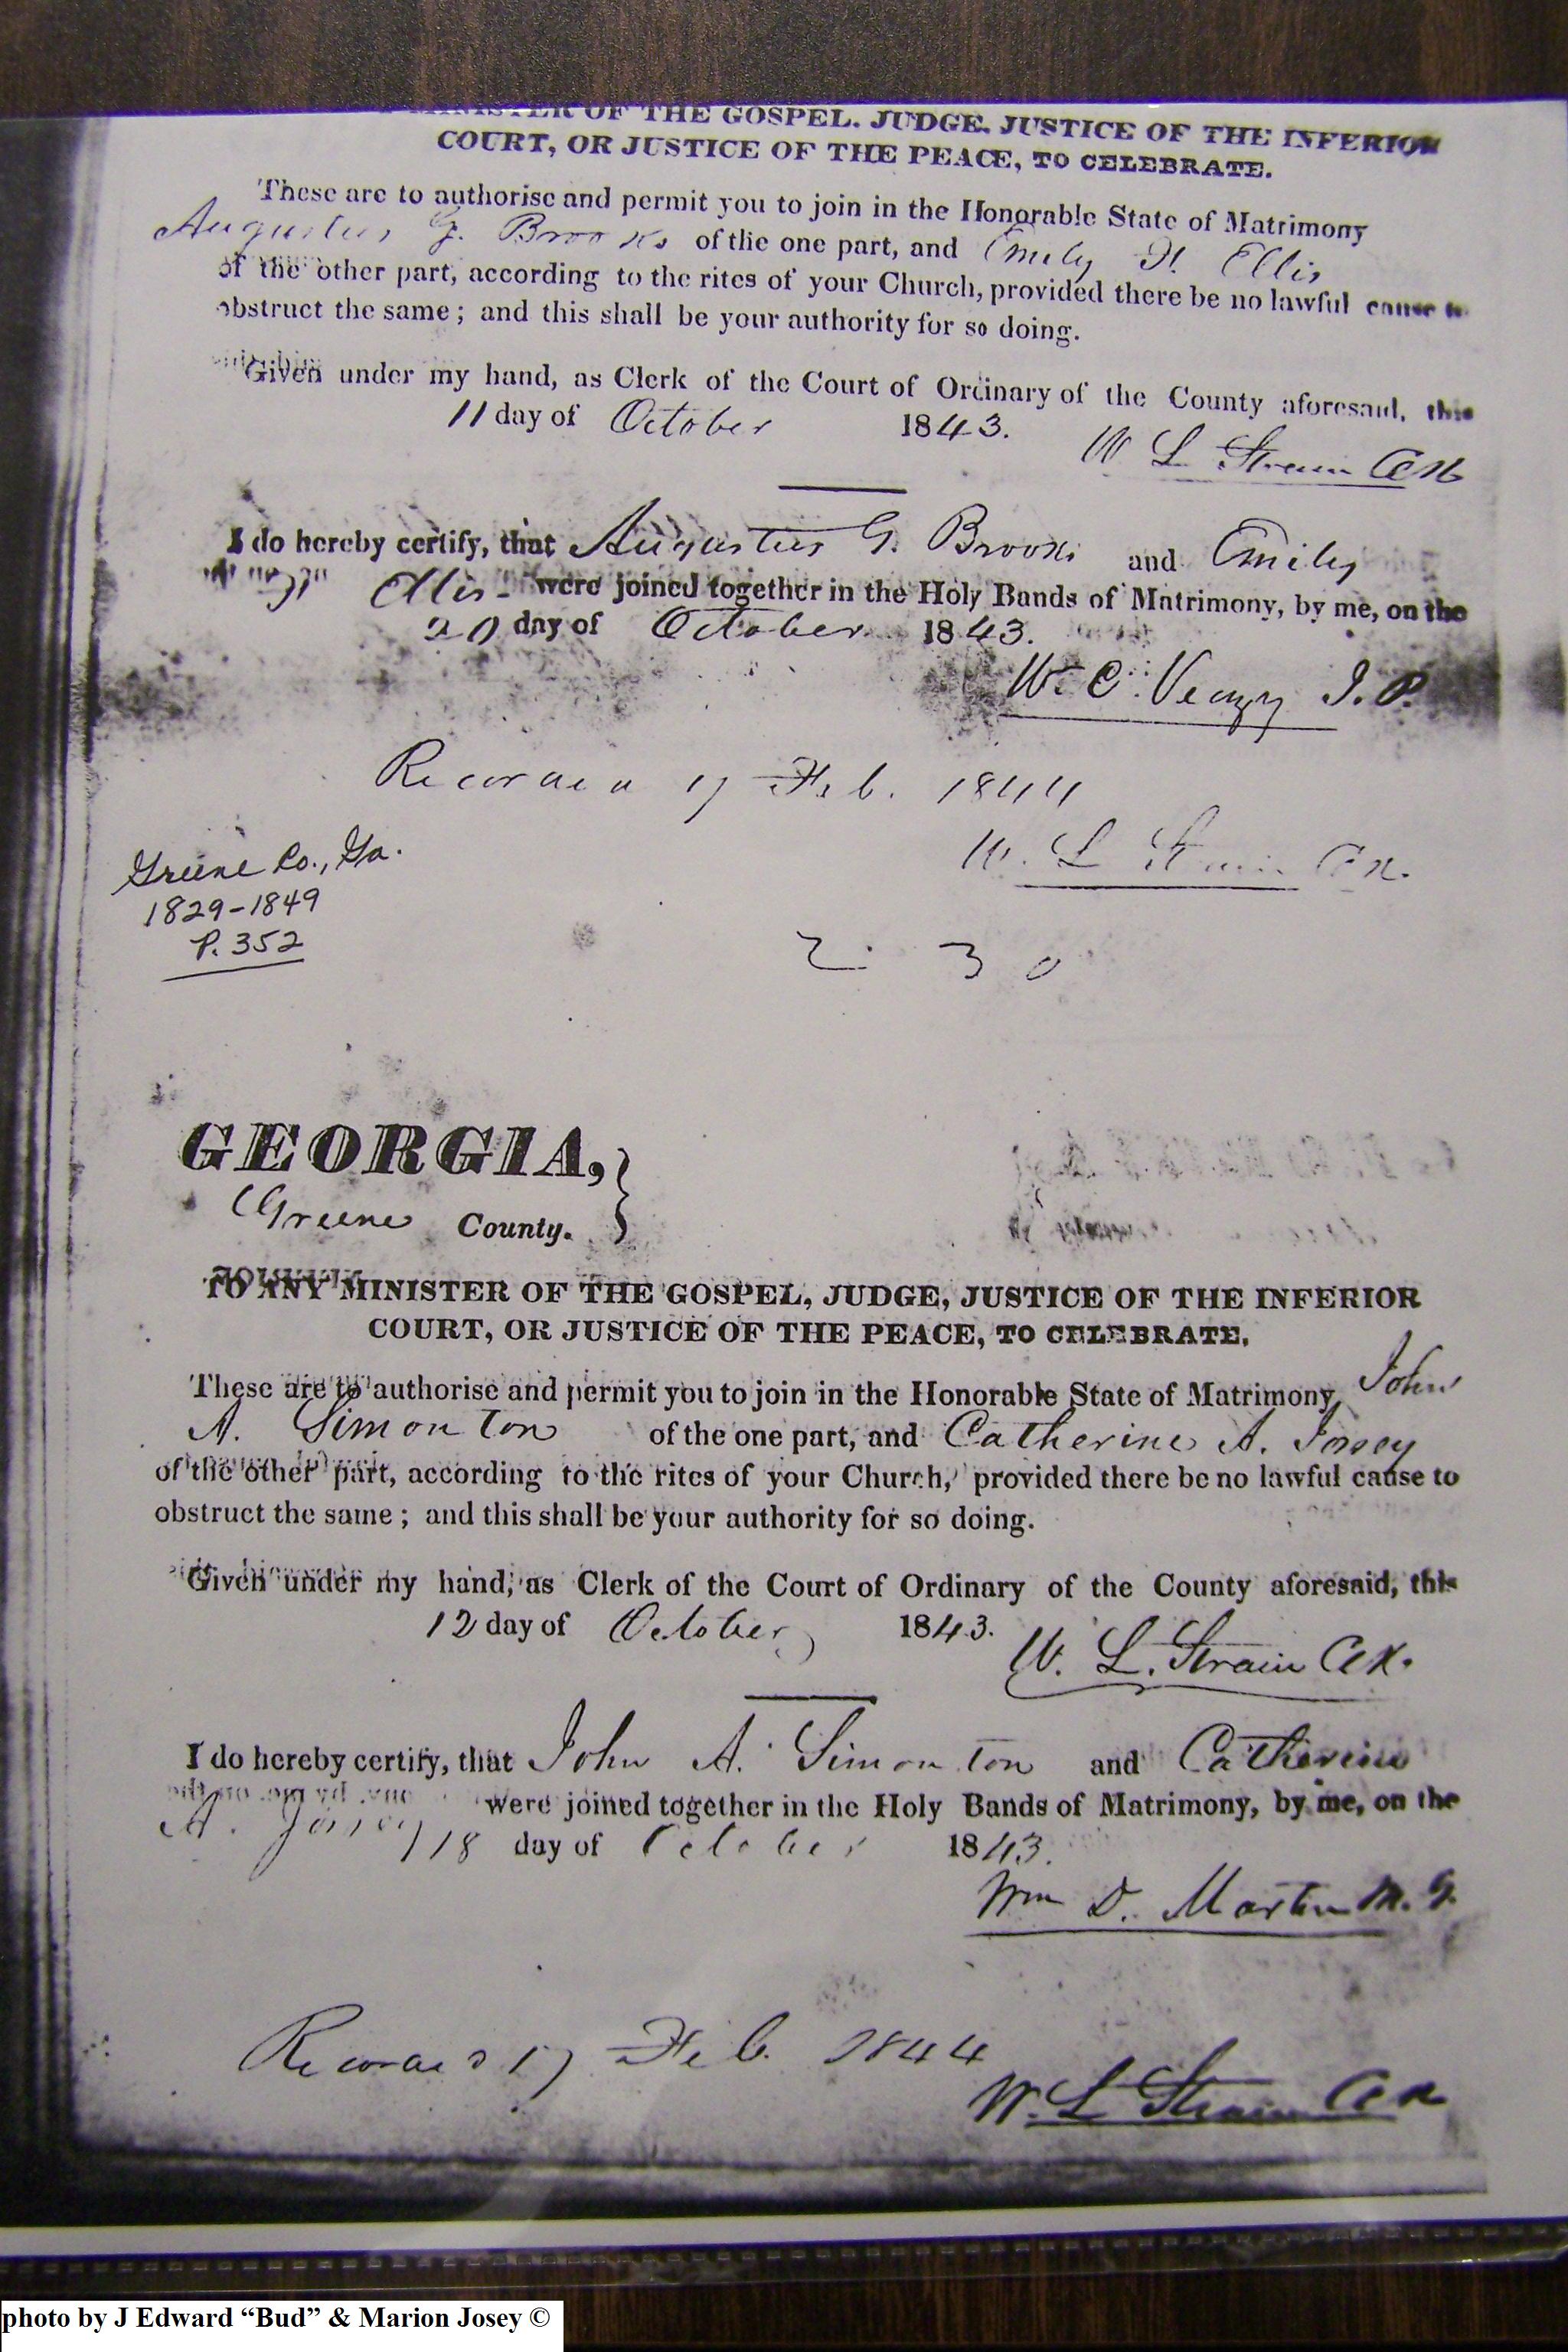 MINISTER OF THE GOSPEL. JUDGE. JUSTICE OF THE INFERIOR
COURT, OR JUSTICE OF THE PEACE, TO CELEBRATE.
These are to authorise and permit you to join in the Honorable State of Matrimony
Augustus G. Brooks of the one part, and Emily H. Ellis
of the other part, according to the rites of your Church, provided there be no lawful cause to
obstruct the same; and this shall be your authority for so doing.
Given under my hand, as Clerk of the Court of Ordinary of the County aforesaid, this
11 day of October 1843.
W L Strain
I do hereby certify, that Augustus G. Brooks and Emily
Ellis were joined together in the Holy Bands of Matrimony, by me, on the
20 day of October 1843.
W. C. Veazy J. P.
Recorded 17 Feb. 1844
W. L Strain
Greene Co., Ga.
1829-1849
P. 352
2 3 0
GEORGIA,
Greene County.
TO ANY MINISTER OF THE GOSPEL, JUDGE, JUSTICE OF THE INFERIOR
COURT, OR JUSTICE OF THE PEACE, TO CELEBRATE.
These are to authorise and permit you to join in the Honorable State of Matrimony John
A. Simonton of the one part, and Catherine A. Josey
of the other part, according to the rites of your Church, provided there be no lawful cause to
obstruct the same; and this shall be your authority for so doing.
Given under my hand, as Clerk of the Court of Ordinary of the County aforesaid, this
12 day of October 1843.
W. L. Strain
I do hereby certify, that John A. Simonton and Catherine
A. Josey were joined together in the Holy Bands of Matrimony, by me, on the
18 day of October 1843.
Wm D. Martin M. G.
Recorded 17 Feb. 1844
W. L Strain
photo by J Edward “Bud” & Marion Josey ©